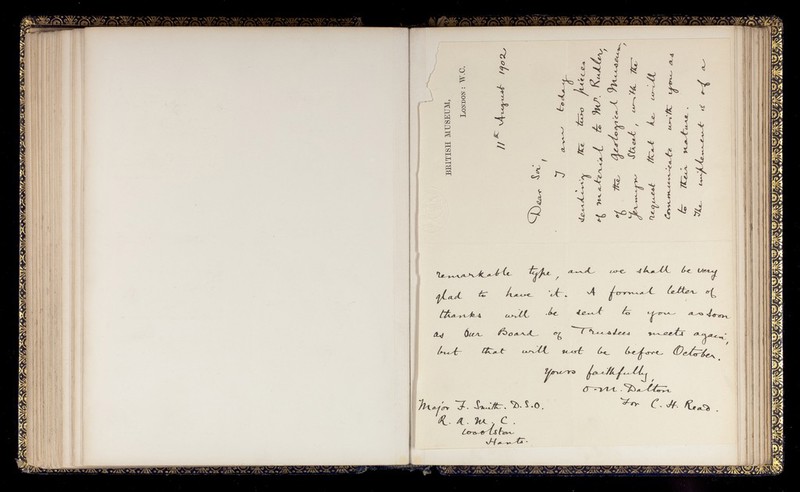 BRITISH MUSEUM,
LONDON: W.C.
11th August 1902
Dear Sir,
I am today
sending the two pieces
of material to Mr. Rudler,
of the Geological Museum,
Jermyn Street, with the
request that he will
communicate with you as
to their nature.
The implement is of a
remarkable type, and we shall be very
glad to have it. A formal letter of
thanks will be sent to you as soon
as our Board of Trustees meets again,
but that will not be before October.
Yours faithfully,
O. M. Dalton
for C. H. Read.
Major F. Smith. D.S.O.
R. A. M. C.
Woolston
Hants.